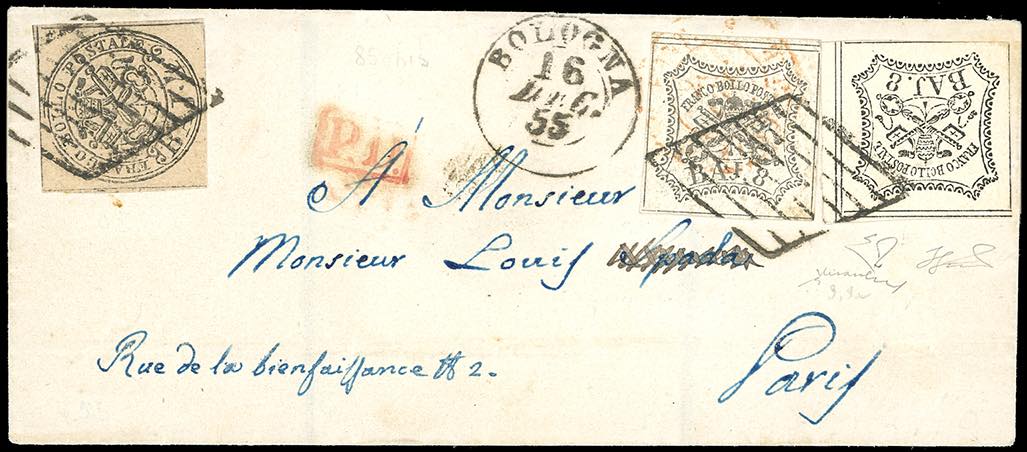 FRANCO BOLLO POSTALE
BOLOGNA
16
DEC.
55
FRANCO BOLLO POSTALE
BAJ. 8
BAJ. 8
FRANCO BOLLO POSTALE
P.D.
À Monsieur
Monsieur Louis Spada
Rue de la bienfaissance # 2.
Paris